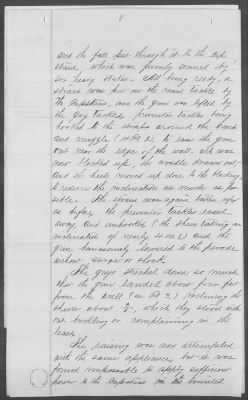 8
and the fall put through it to the
which was firmly secured by
six heavy stakes. All being ready, a
strain was put on the main tackle by
the Capstans, and the gun was lifted by
the Guy tackles, preventer tackles being
hooked to the straps around the breech
and muzzle to ease the gun
out near the edge of the wall. She was
now blocked up, the cradle drawn out,
and the heels moved up close to the blocking
to reduce the inclination as much as pos-
sible. The strain was again taken up
as before, the preventer tackles eased
away and unhooked (the shears taking an
inclination of nearly ) and the
gun handsomely lowered to the parade
without surge or shock.
The guys stretched some so much
that the gun landed above four feet
from the wall inclining the
shears about , which they stood with-
out buckling or complaining in the
least.
The raising was now attempted
with the same appliances, but it was
found impossible to apply sufficient
power to the Capstans in the limited